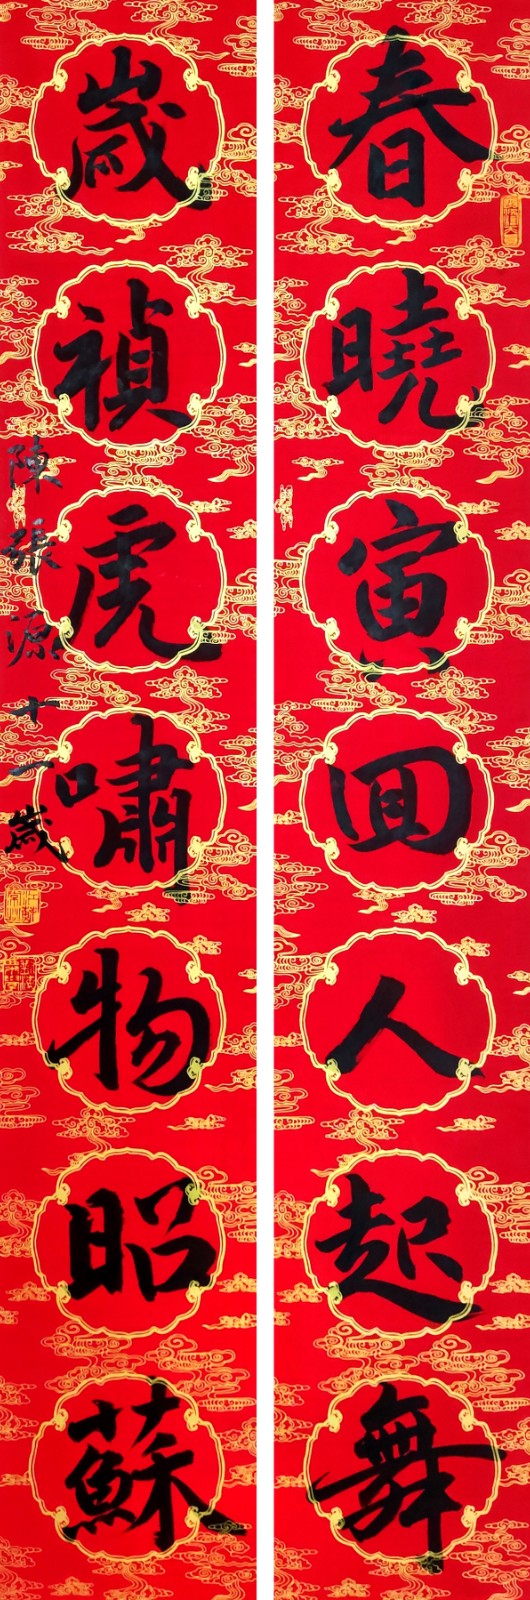 春曉寅回人起舞
歲禎虎嘯物昭蘇
陳張源十一歲